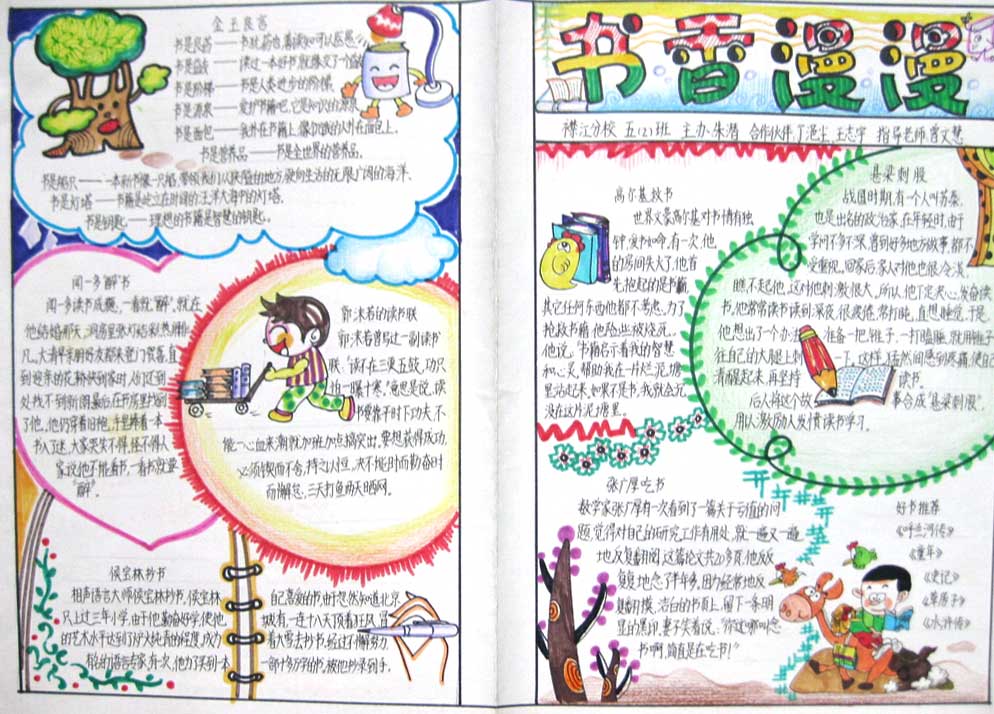 金玉良言
书是良药——书犹药也,善读之可以医愚。
书是益友——读过一本好书,就像交了个益友
书是阶梯——书是人类进步的阶梯。
书是源泉——爱护书籍吧,它是知识的源泉
书是面包——我扑在书籍上,像饥饿的人扑在面包上。
书是营养品——书是全世界的营养品。
书是船只——一本新书像一只船,带领我们从狭隘的地方,驶向生活的无限广阔的海洋.
书是灯塔——书籍是屹立在时间的汪洋大海中的灯塔.
书是钥匙——理想的书籍是智慧的钥匙。
闻一多"醉"书
闻一多读书成瘾,一看就"醉",就在
他结婚那天,洞房里张灯结彩,热闹非
凡。大清早亲朋好友都来登门贺喜,直
到迎亲的花轿快到家时,人们还到
处找不到新郎。最后在书房里找到
了他,他仍穿着旧袍,手里捧着一本
书入了迷,大家哭笑不得,怪不得人
家说他不能看书,一看书就要
"醉"。
郭沫若的读书联
郭沫若曾写过一副读书
联:"读不在三更五鼓,功只
怕一曝十寒。"意思是说,读
书要靠平时下功夫,不
能一心血来潮,就加班加点搞突出,要想获得成功,
必须锲而不舍,持之以恒,决不能时而勤奋时
而懈怠,三天打鱼两天晒网。
侯宝林抄书
相声语言大师侯宝林抄书,侯宝林
只上过三年小学,由于他勤奋好学,使他
的艺术水平达到了炉火纯青的程度,成为
有名的语言专家,有次,他为了买到一本
自己喜爱的书,由于忽然知道北京
城有,一连十八天顶着狂风,冒
着大雪去抄书,经过不懈努力,
一部十多万字的书,被他抄录到手。
书香漫漫
襟江分校 五(2)班 主办:朱潜 合作伙伴:丁浥尘、王志宇 指导老师:曹文慧
高尔基救书
世界文豪高尔基对书情有独
钟,爱书如命,有一次,他
的房间失火了,他首
先抱起的是书籍,
其它任何东西他都不考虑,为了
抢救书籍,他险些被烧死。
他说,"书籍启示着我的智慧
和心灵,帮助我在一片烂泥塘
里站起来,如果不是书,我就会沉
没在这片泥塘里。
悬梁刺股
战国时期,有一个人叫苏秦,
也是出名的政治家,在年轻时,由于
学问不多不深,曾到好多地方做事,都不
受重视。回家后,家人对他也很冷淡,
瞧不起他,这对他刺激很大,所以,他下定决心,发奋读
书,他常常读书读到深夜,很疲倦,常打盹,直想睡觉,于是,
他想出了一个办法,准备一把锥子,一打瞌睡,就用锥子
往自己的大腿上刺一下,这样,猛然间感到疼痛,使自己
清醒起来,再坚持读书。
后人将这个故事合成"悬梁刺股",
用以激励人发愤读书学习。
张广厚吃书
数学家张广厚有一次看到了一篇关于亏值的问
题,觉得对自己的研究工作有用处,就一遍又一遍
地反复翻阅,这篇论文共20多页,他反反
复复地念了半年多,因为经常地反
复翻摸,洁白的书页上,留下一条明
显的黑印,妻子笑着说:"你这哪叫念
书啊,简直是在吃书!"
好书推荐
《呼兰河传》
《童年》
《史记》
《草房子》
《水浒传》